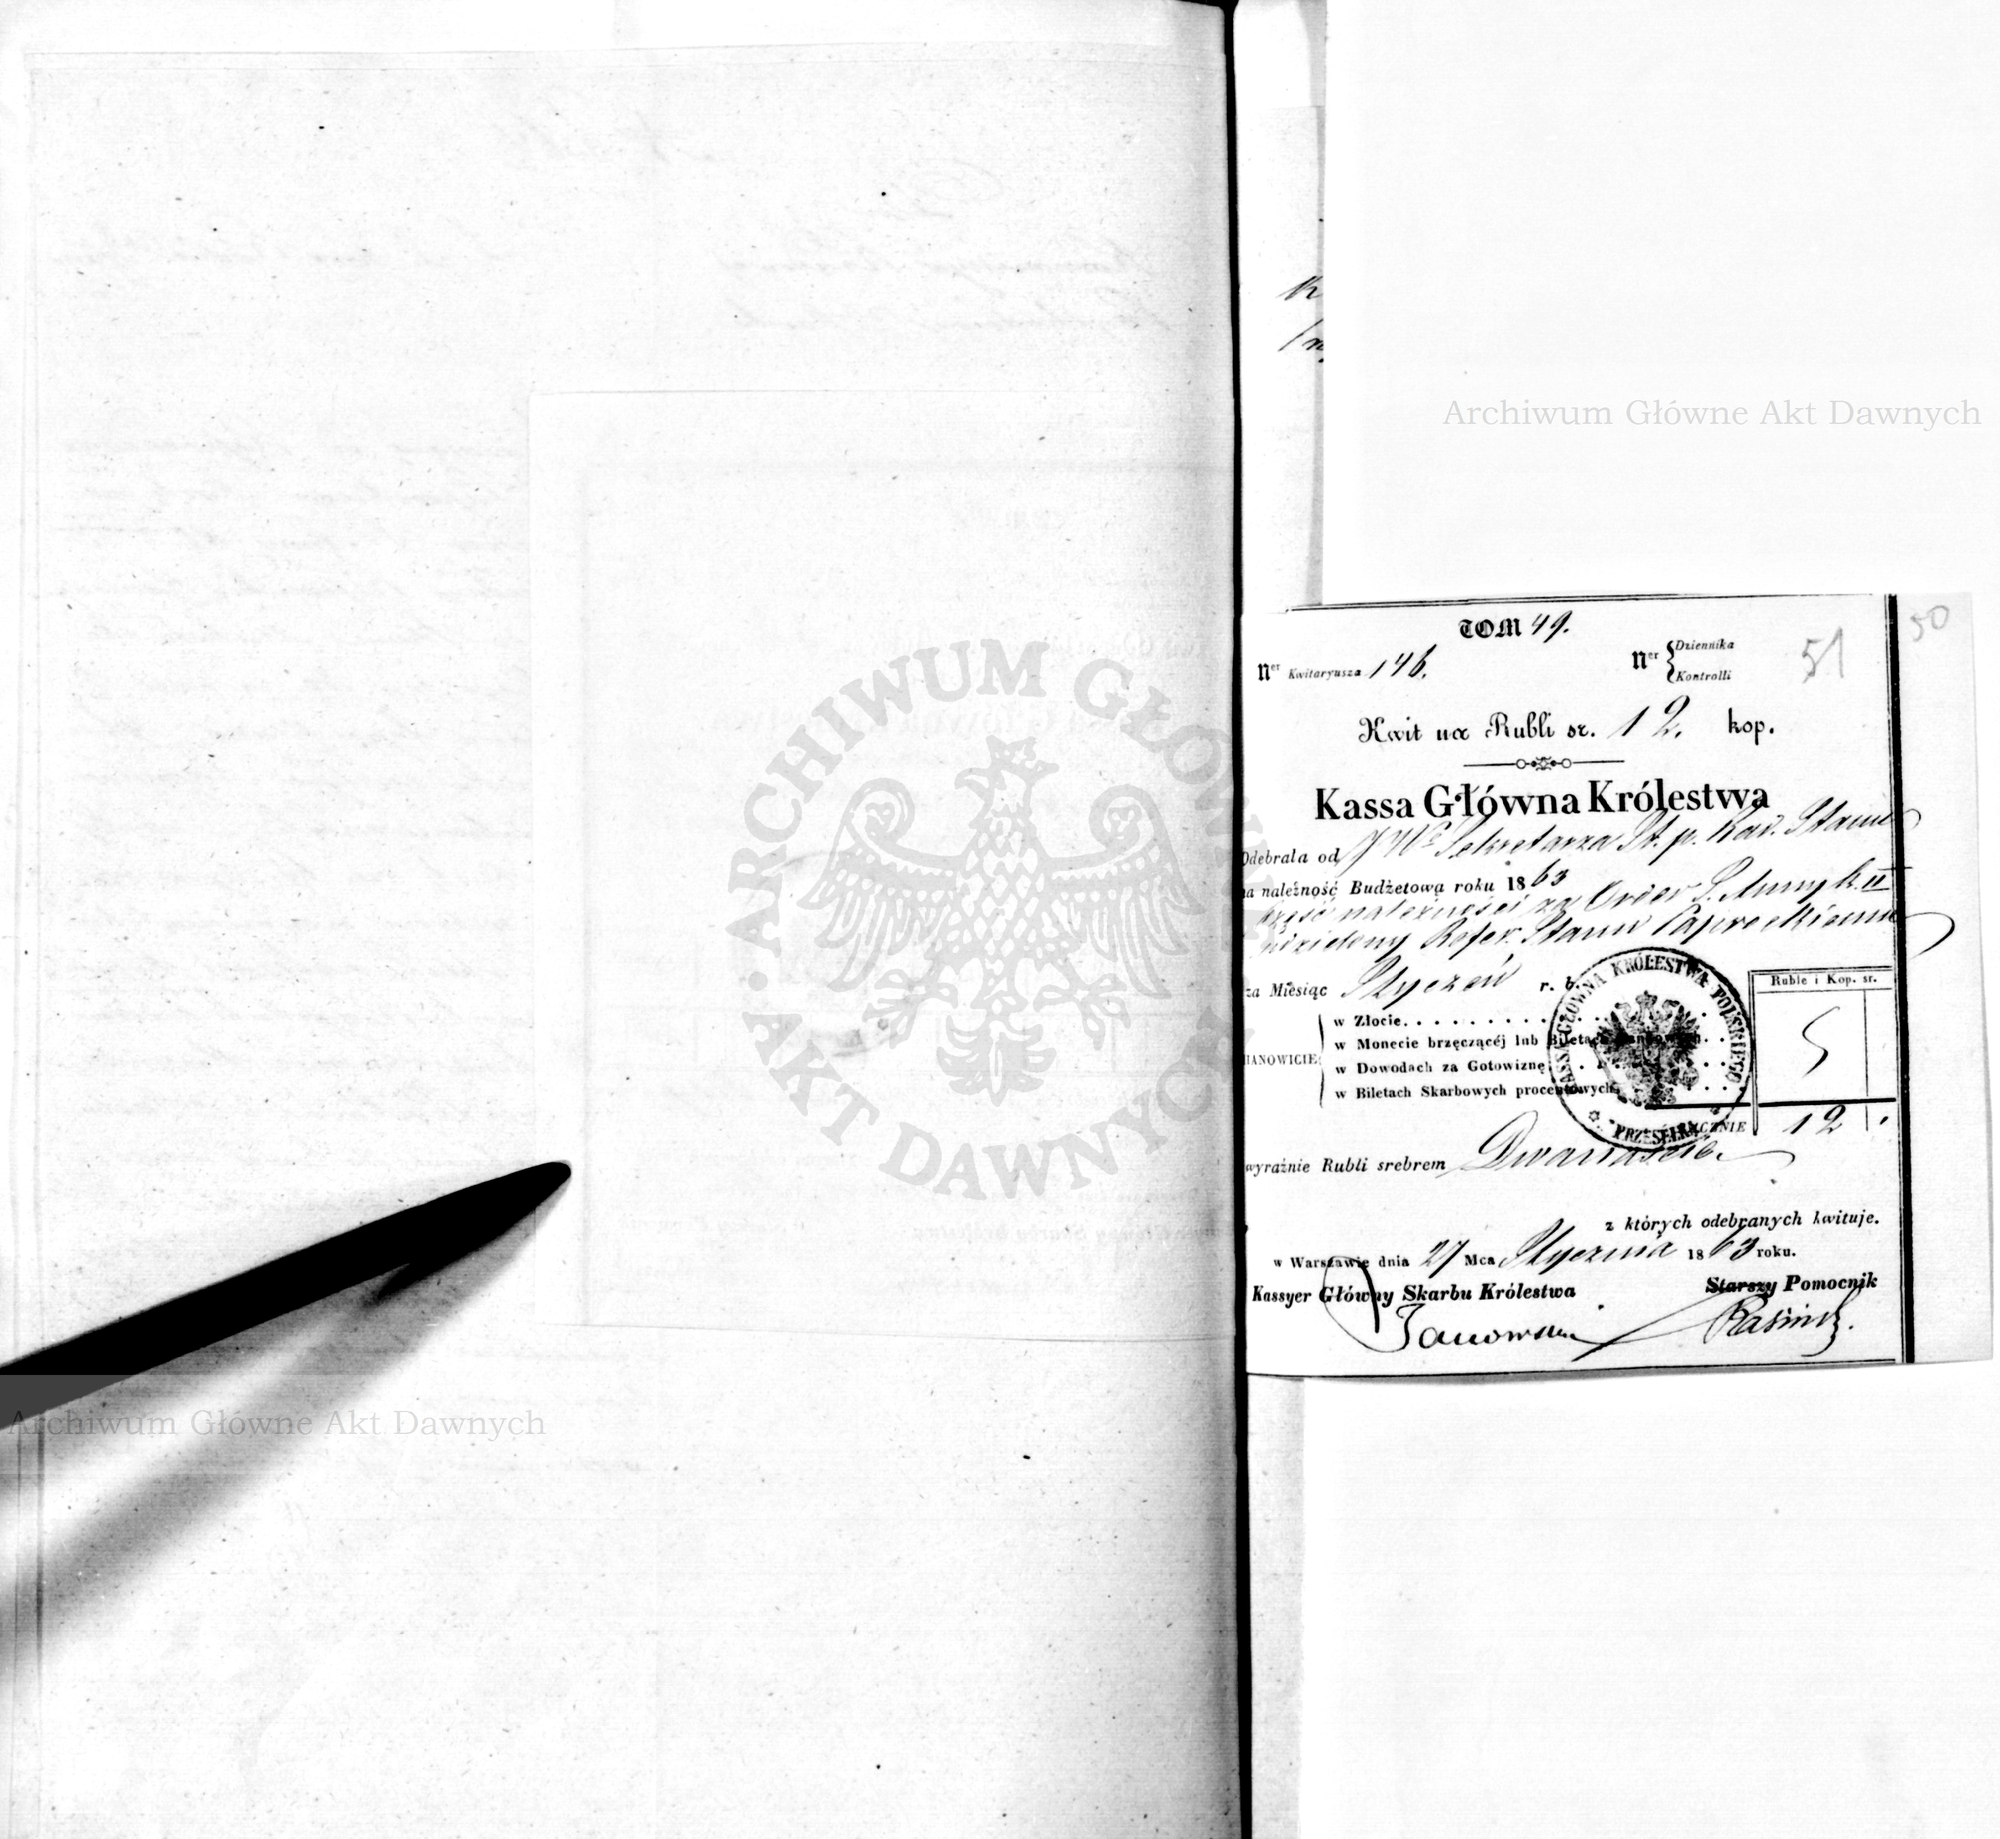 TOM 49.
51
50
Ner Kwitaryusza 146.
Ner Dziennika
Kontrolli
Kwit na Rubli sr. 12. kop.
Kassa Główna Królestwa
Odebrała od JWo Sekretarza St. p. Rad. Stanu
na należność Budżetową roku 1863
część należności za Order S. Anny k. II
udzielony Refer. Stanu Paprockiemu
za Miesiąc Styczeń r. b.
Ruble i Kop. sr.
MIANOWICIE:
w Złocie
w Monecie brzęczącéj lub Biletach Bankowych
w Dowodach za Gotowiznę
w Biletach Skarbowych procentowych
ŁĄCZNIE 12
wyraźnie Rubli srebrem Dwanaście.
z których odebranych kwituje.
w Warszawie dnia 27 Mca Stycznia 1863 roku.
Kassyer Główny Skarbu Królestwa
Starszy Pomocnik
Janowski
KASSA GŁÓWNA KRÓLESTWA POLSKIEGO
ARCHIWUM GŁÓWNE AKT DAWNYCH
Archiwum Główne Akt Dawnych
Archiwum Główne Akt Dawnych